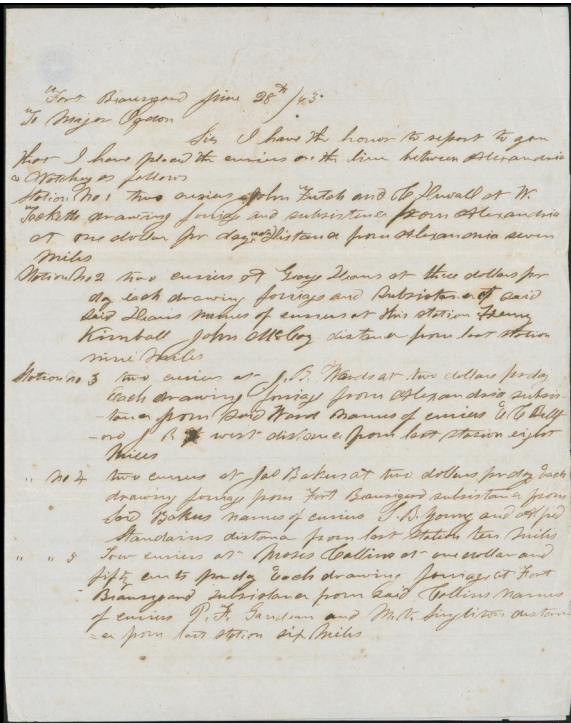 Fort Beauregard June 28th /63
To Major Ogdon
Sir I have the honor to report to you
that I have placed the curiers on the line between Alexandria
& Natchez as follows
Station No 1 two curiers John Futch and at W.
Tacketts drawing forrige and subsistance from Alexandria
at one dollar pr day each Distance from Alexandria seven
Miles
Station No 2 two curiers at George Hears at three dollars pr
day each drawing forrige and Subsistance of said
said names of curiers at this station Henry
Kimball John McCoy distance from last station
nine Miles
Station no 3 two curiers at J. B. Wards at two dollars pr day
each drawing forrige from Alexandria subsis-
tance from said Ward Names of curiers
J R west distance from last station eight
Miles
" no 4 two curiers at Jas Bakers at two dollars pr day Each
drawing forrige from Fort Beauregard subsistance from
said Bakers names of curiers T. B. Young and
distance from last Station ten Miles
" " 5 curiers at Moses Collins at one dollar and
fifty cents pr day Each drawing forrage at Fort
Beauregard subsistance from said Collins Names
of curiers P. F. and M. V. distan
ce from last station six Miles